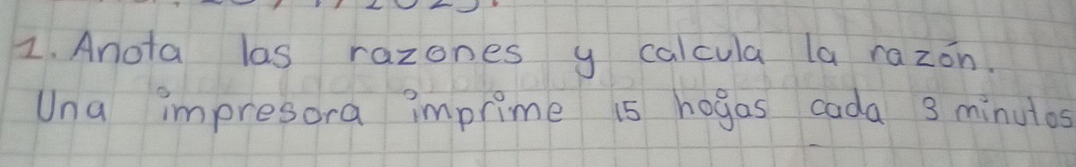 1. Anota las razones y calcula la razón.
Una impresora imprime 15 hogas cada 3 minutos